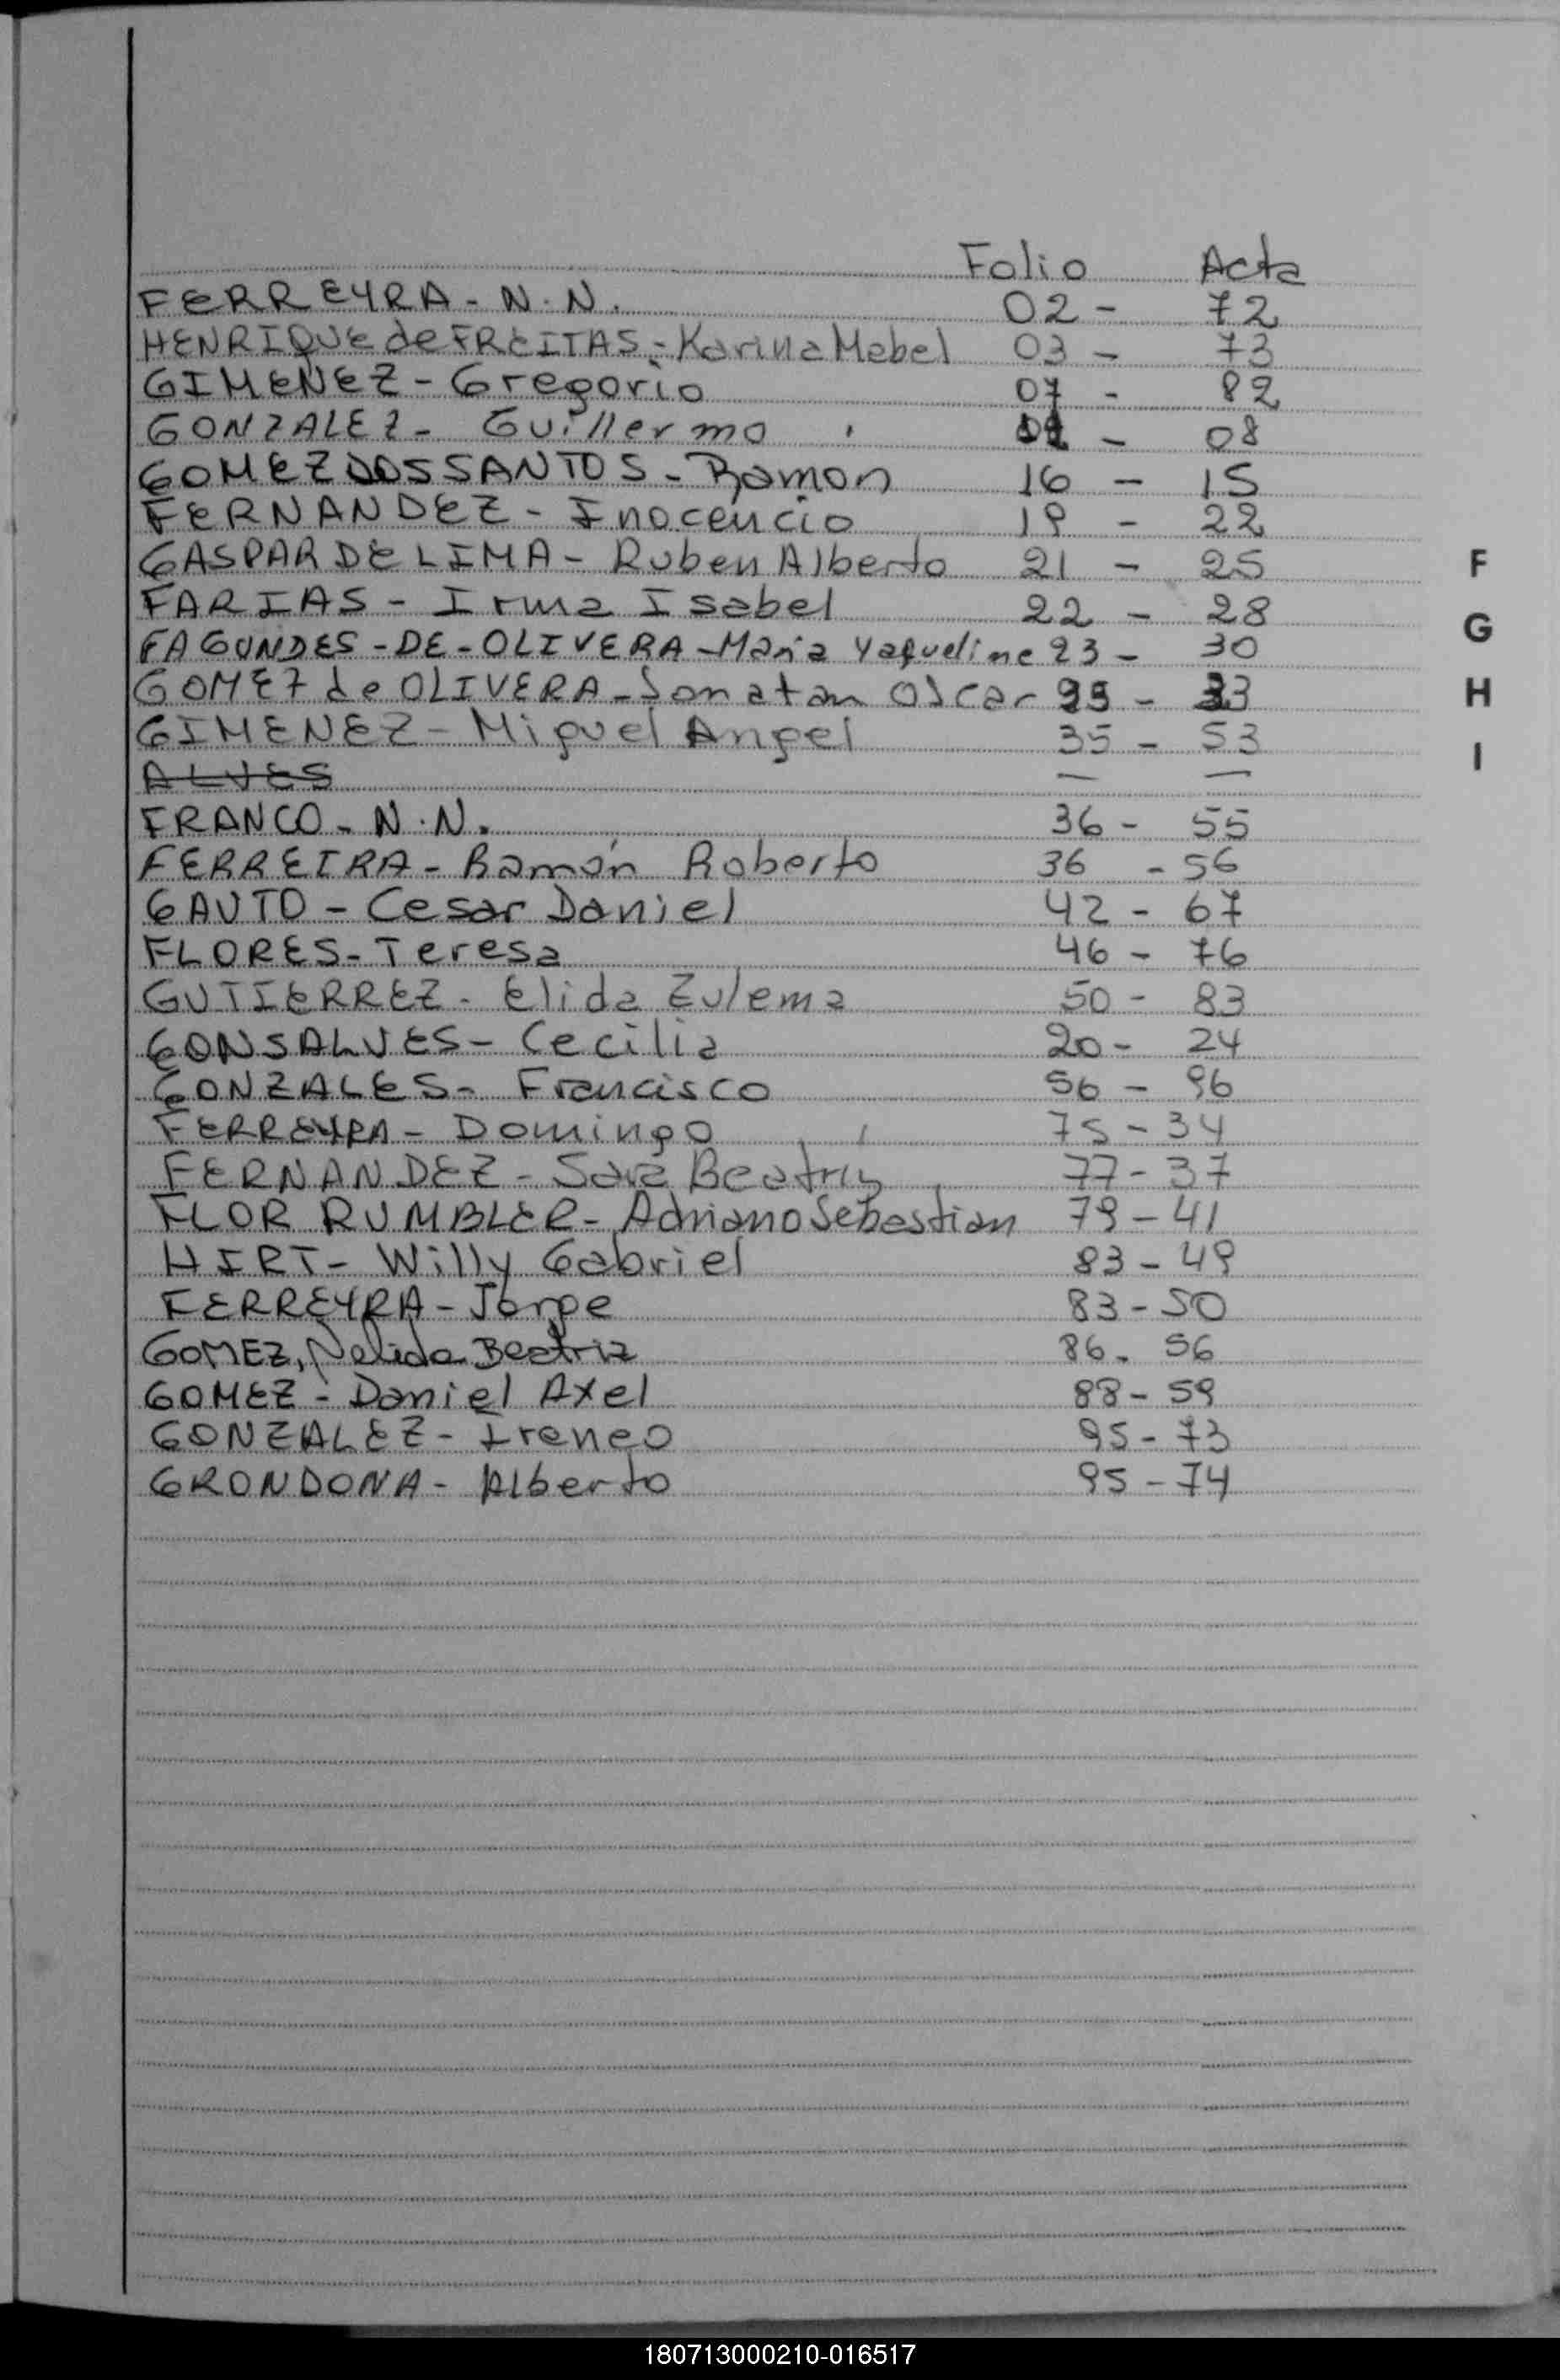 Folio Acta
FERREYRA - N.N. 02 - 72
HENRIQUE de FREITAS - Karina Mabel 03 - 73
GIMENEZ - Gregorio 07 - 82
GONZALEZ - Guillermo - 08
GOMEZ DOS SANTOS - Ramon 16 - 15
FERNANDEZ - Inocencio 19 - 22
GASPAR DE LIMA - Ruben Alberto 21 - 25
FARIAS - Irma Isabel 22 - 28
F
FAGUNDES - DE - OLIVERA - Maria Yaqueline 23 - 30
G
GOMEZ de OLIVERA - Jonatan Oscar - 33
H
GIMENEZ - Miguel Angel 35 - 53
I
ALVES — —
FRANCO - N.N. 36 - 55
FERREIRA - Ramón Roberto 36 - 56
GAUTO - Cesar Daniel 42 - 67
FLORES - Teresa 46 - 76
GUTIERREZ - Elida Zulema 50 - 83
GONSALVES - Cecilia 20 - 24
GONZALES - Francisco 56 - 96
FERREYRA - Domingo 75 - 34
FERNANDEZ - Sara Beatriz 77 - 37
FLOR RUMBLER - Adriano Sebastian 79 - 41
HIRT - Willy Gabriel 83 - 49
FERREYRA - Jorge 83 - 50
GOMEZ, Nelida Beatriz 86 - 56
GOMEZ - Daniel Axel 88 - 59
GONZALEZ - Ireneo 95 - 73
GRONDONA - Alberto 95 - 74
180713000210-016517